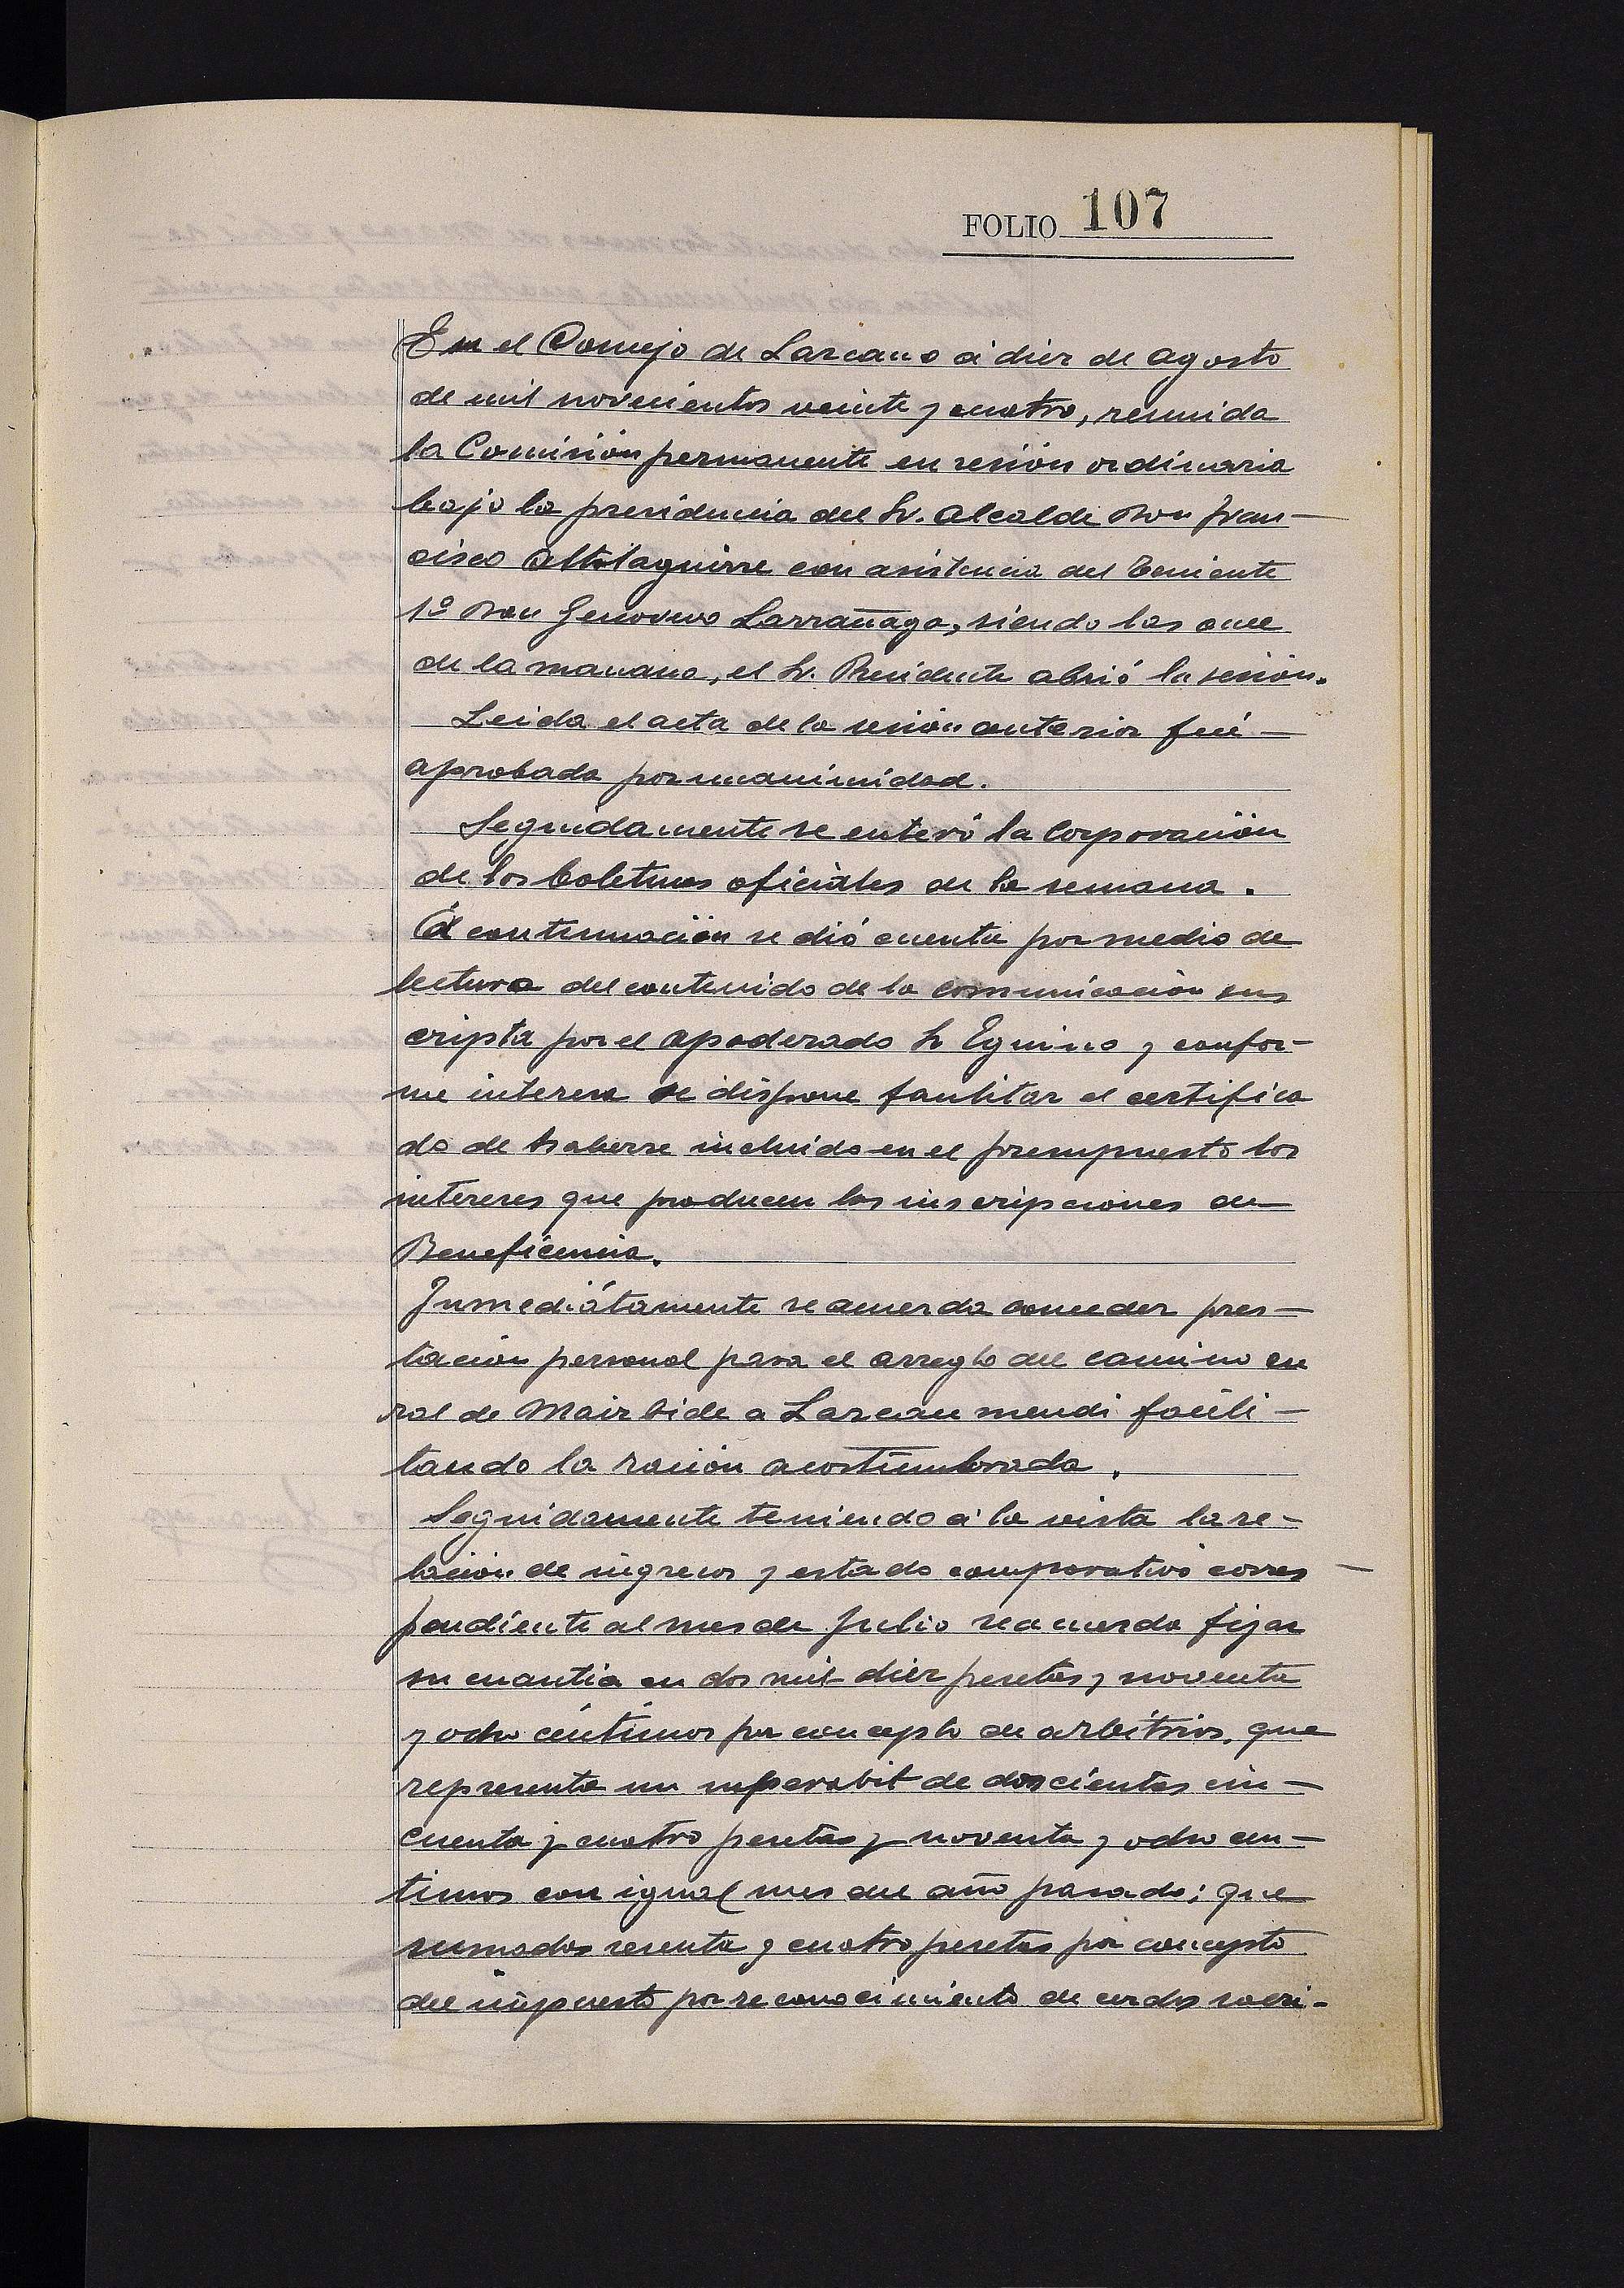 FOLIO 107
En el Concejo de Lazcano á diez de agosto
de mil novecientos veinte y cuatro, reunida
la Comisión permanente en sesión ordinaria
bajo la presidencia del Sr. Alcalde Don Fran-
cisco Altolaguirre con asistencia del Teniente
1º Don Genoveno Larrañaga, siendo las once
de la mañana, el Sr. Presidente abrió la sesión.
Leida el acta de la sesión anterior fué
aprobada por unanimidad.
Seguidamente se enteró la Corporación
de los boletines oficiales de la semana.
A continuación se dió cuenta por medio de
lectura del contenido de la comunicación sus
cripta por el apoderado Sr Eguino y confor-
me interesa se dispone facilitar el certifica
do de haberse incluido en el presupuesto los
intereses que producen las inscripciones de
Beneficencia.
Inmediátamente se acuerda conceder pres-
tación personal para el arreglo del camino ca
ral de Mairbide a Lazcau mendi facili-
tando la ración acostumbrada.
Seguidamente teniendo á la vista la re-
lación de ingresos y estado comparativo corres
pondiente al mes de Julio se acuerda fijar
su cuantia en dos mil diez pesetas y noventa
y ocho céntimos por concepto de arbitrios, que
representa un superabit de doscientas cin-
cuenta y cuatro pesetas y noventa y ocho cen-
timos con igual mes del año pasado; que
sumados sesenta y cuatro pesetas por concepto
del impuesto por reconocimiento de cerdos sacri-